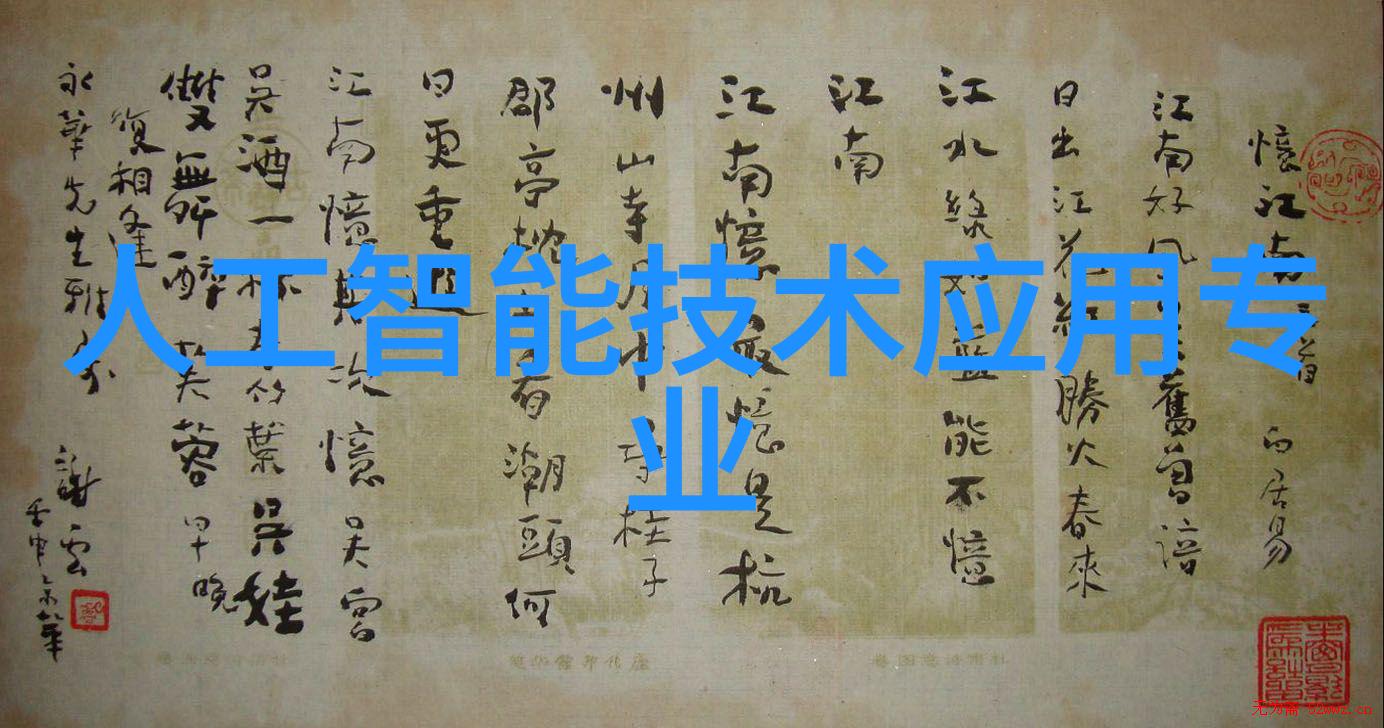 人工智能技术应用专
业
憶江南三首 白居易
江南好風景舊曾諳
日出江花紅勝火春來
江水綠如藍能不憶
江南
江南憶最憶是杭
州山寺月中尋桂子
郡亭枕上看潮頭何
日更重遊
江南憶其次憶吳宮
吳酒一杯春竹葉吳娃
雙舞醉芙蓉早晚
復相逢
永華先生雅
謝雲
壬申京華
无为斋 52wwz.cn